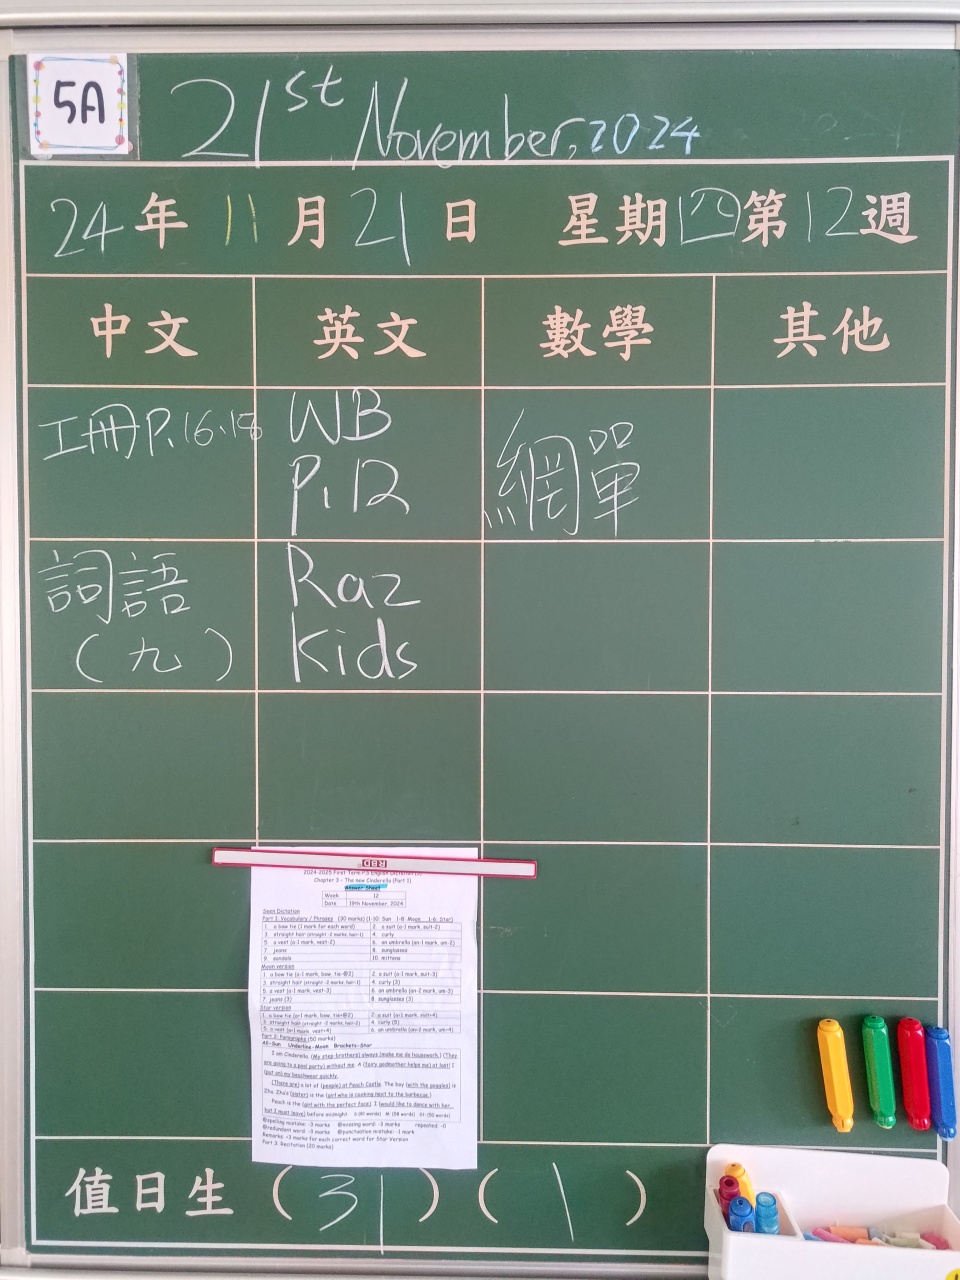 5A
21st November, 2024
24年 11月 21日 星期四 第12週
中文 英文 數學 其他
工冊P.16.18
WB
P.12
網單
詞語
(九)
Raz
Kids
RBD
2024-2025 First Term P.5 English Dictation
Chapter 3 - The new Cinderella (Part 1)
Answer Sheet
Week 12
Date 19th November, 2024
Seen Dictation
Part 1: Vocabulary / Phrases (30 marks) (1-10: Sun 1-8: Moon 1-6: Star)
1. a bow tie (1 mark for each word) 2. a suit (a-1 mark, suit-2)
3. straight hair (straight -2 marks, hair-1) 4. curly
5. a vest (a-1 mark, vest-2) 6. an umbrella (an-1 mark, um-2)
7. jeans 8. sunglasses
9. sandals 10. mittens
Moon version
1. a bow tie (a-1 mark, bow, tie-@2) 2. a suit (a-1 mark, suit-3)
3. straight hair (straight -2 marks, hair-1) 4. curly (3)
5. a vest (a-1 mark, vest-3) 6. an umbrella (an-2 mark, um-3)
7. jeans (3) 8. sunglasses (3)
Star version
1. a bow tie (a-1 mark, bow, tie+@2) 2. a suit (a-1 mark, suit+4)
3. straight hair (straight -2 marks, hair-2) 4. curly (5)
5. a vest (a-1 mark, vest+4) 6. an umbrella (an-1 mark, um+4)
Part 2: Paragraphs (50 marks)
All-Sun Underline-Moon Brackets-Star
I am Cinderella. (My step-brothers) always (make me do housework.) (They
are going to a pool party) without me. A (fairy godmother helps me) at last! I
(put on) my beachwear quickly.
(There are) a lot of (people) at Peach Castle. The boy (with the goggles) is
Zhu. Zhu's (sister) is the (girl who is cooking next to the barbecue.)
Peach is the (girl with the perfect face). I (would like to dance with her,
but I must leave) before midnight.
@spelling mistake: -3 marks @missing word: -3 marks repeated: -0
@redundant word: -3 marks @punctuation mistake: -1 mark
Remarks: +3 marks for each correct word for Star Version
Part 3: Recitation (20 marks)
值日生 (31) (1)